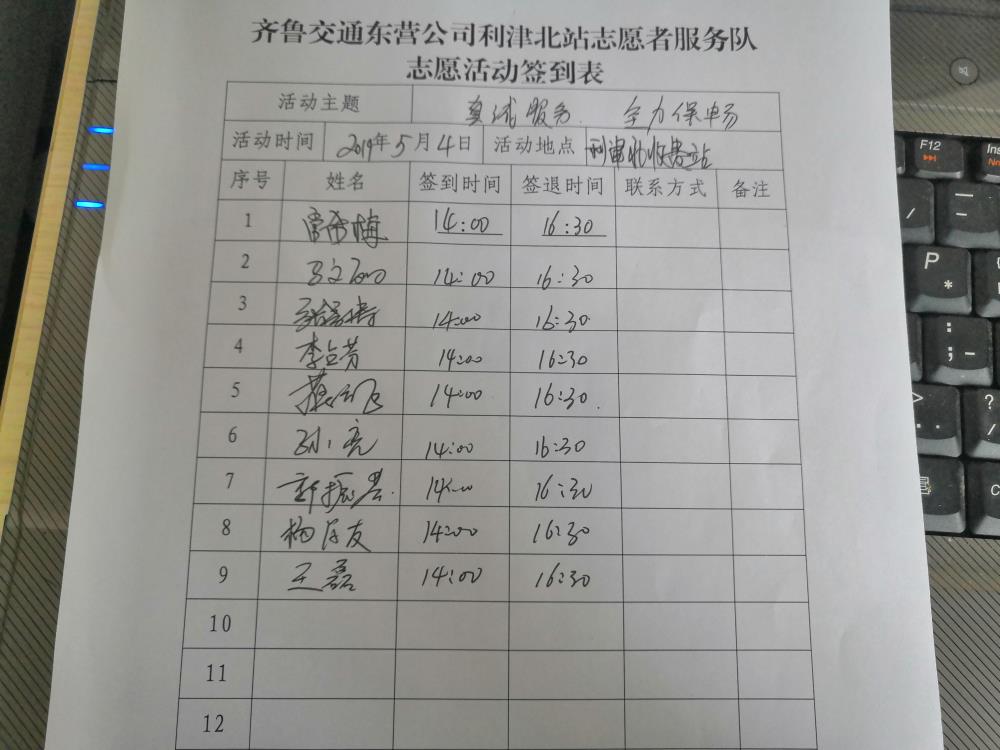 齐鲁交通东营公司利津北站志愿者服务队
志愿活动签到表
活动主题 真诚服务 全力保畅
活动时间 2019年5月4日 活动地点 利津北收费站
序号 姓名 签到时间 签退时间 联系方式 备注
1 14:00 16:30
2 14:00 16:30
3 14:00 16:30
4 李益芳 14:00 16:30
5 14:00 16:30
6 孙亮 14:00 16:30
7 14:00 16:30
8 14:00 16:30
9 王磊 14:00 16:30
10
11
12
F12
Ins
P
*
:
;
-
?
/